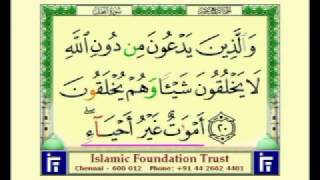 وَالَّذِينَ يَدْعُونَ مِن دُونِ اللَّهِ
لَا يَخْلُقُونَ شَيْئًا وَهُمْ يُخْلَقُونَ
﴿٢٠﴾ أَمْوَاتٌ غَيْرُ أَحْيَاءٍ ۖ
Islamic Foundation Trust
Chennai - 600 012 Phone : +91 44 2662 4401